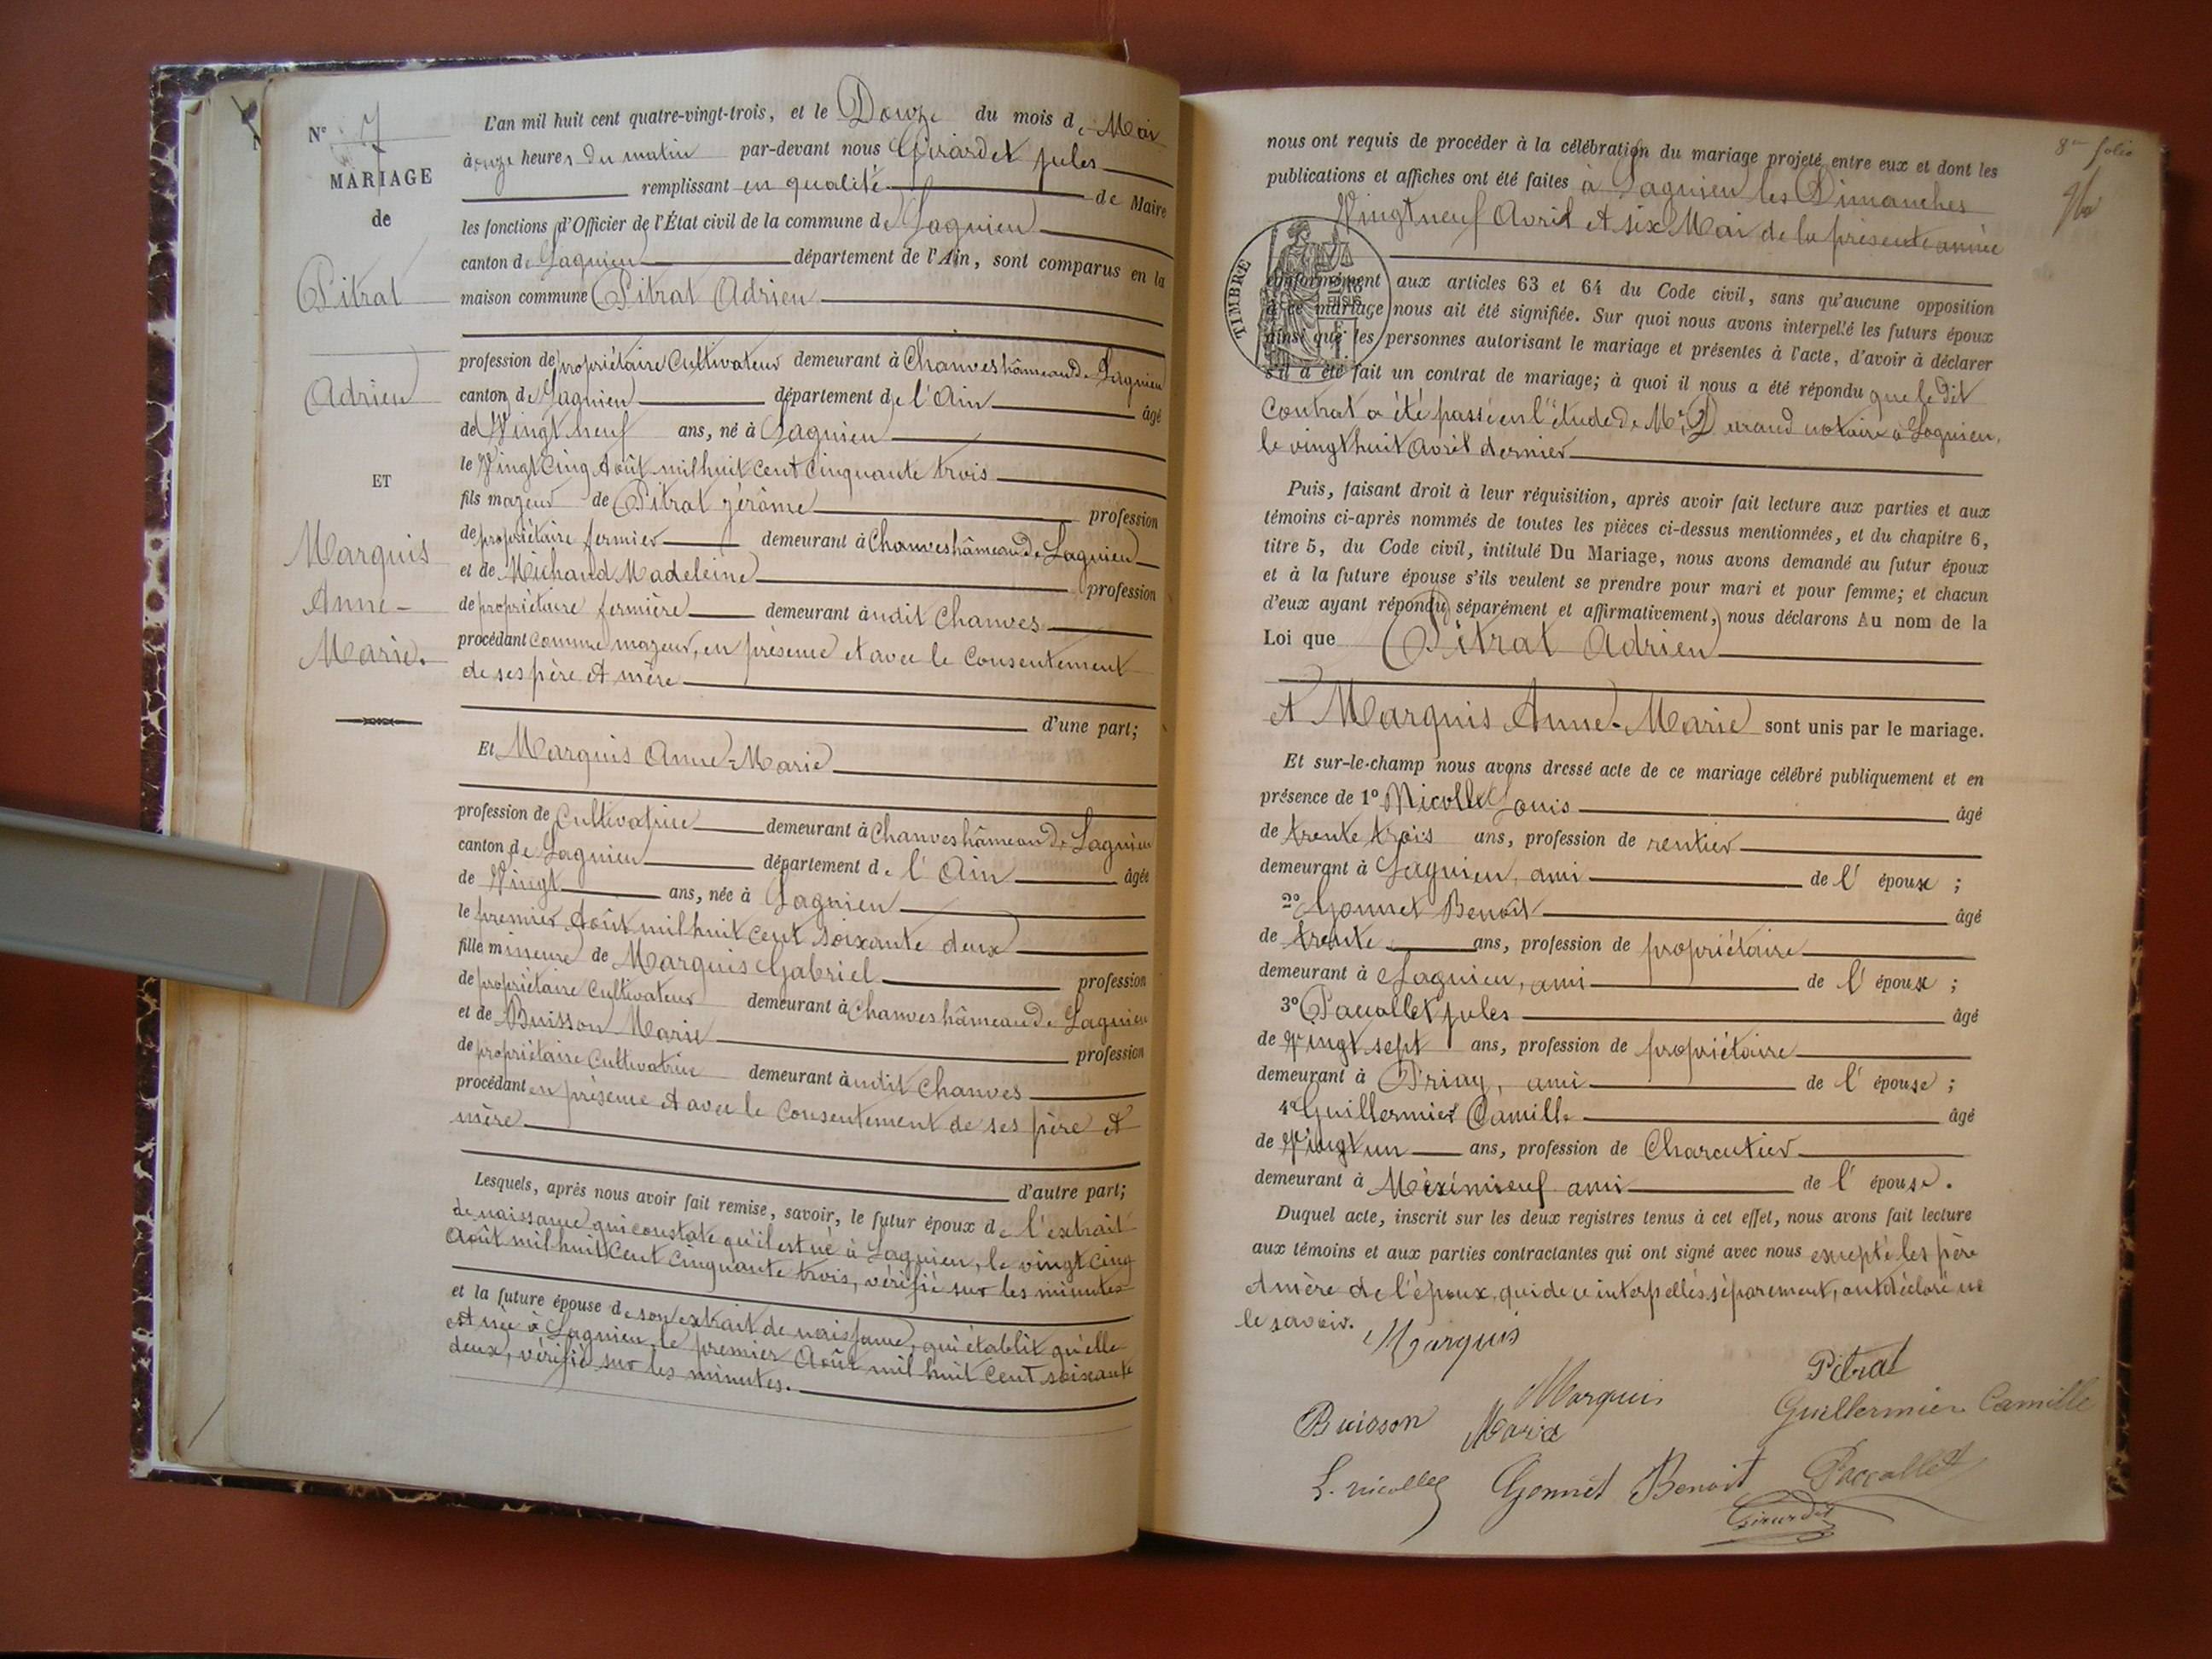 N° 7
MARIAGE
de
Pitrat
Adrien
ET
Marquis
Anne-
Marie.
L'an mil huit cent quatre-vingt-trois, et le Douze du mois de Mai
à onze heures du matin par-devant nous Girardet jules
remplissant en qualité de Maire
les fonctions d'Officier de l'État civil de la commune de Lagnieu
canton de Lagnieu département de l'Ain, sont comparus en la
maison commune Pitrat Adrien
profession de propriétaire Cultivateur demeurant à Chanves hâmeau de Lagnieu
canton de Lagnieu département de l'Ain âgé
de Vingt neuf ans, né à Lagnieu
le Vingt Cinq Août mil huit cent Cinquante trois
fils majeur de Pitrat jérôme profession
de propriétaire fermier demeurant à Chanves hâmeau de Lagnieu
et de Michaud Madeleine profession
de propriétaire fermière demeurant à udit Chanves
procédant comme majeur, en présence et avec le Consentement
de ses père et mère
d'une part;
Et Marquis Anne=Marie
profession de Cultivatrice demeurant à Chanves hâmeau de Lagnieu
canton de Lagnieu département de l'Ain âgée
de Vingt ans, née à Lagnieu
le premier Août mil huit cent soixante deux
fille mineure de Marquis Gabriel profession
de propriétaire Cultivateur demeurant à Chanves hâmeau de Lagnieu
et de Buisson Marie profession
de propriétaire Cultivatrice demeurant à udit Chanves
procédant en présence et avec le Consentement de ses père et
mère
d'autre part;
Lesquels, après nous avoir fait remise, savoir, le futur époux de l'extrait
de naissance qui constate qu'il est né à Lagnieu, le vingt Cinq
Août mil huit Cent Cinquante trois, vérifié sur les minutes
et la future épouse de son extrait de naissance, qui établit qu'elle
est née à Lagnieu, le premier Août mil huit Cent soixante
deux, vérifié sur les minutes.
8me folio
nous ont requis de procéder à la célébration du mariage projeté entre eux et dont les
publications et affiches ont été faites à Lagnieu les Dimanches
Vingt neuf Avril et six Mai de la présente année
TIMBRE
conformément aux articles 63 et 64 du Code civil, sans qu'aucune opposition
à ce mariage nous ait été signifiée. Sur quoi nous avons interpellé les futurs époux
ainsi que les personnes autorisant le mariage et présentes à l'acte, d'avoir à déclarer
s'il a été fait un contrat de mariage; à quoi il nous a été répondu que le dit
Contrat a été passé en l'étude de Me Durand notaire à Lagnieu,
le vingt huit Avril dernier
Puis, faisant droit à leur réquisition, après avoir fait lecture aux parties et aux
témoins ci-après nommés de toutes les pièces ci-dessus mentionnées, et du chapitre 6,
titre 5, du Code civil, intitulé Du Mariage, nous avons demandé au futur époux
et à la future épouse s'ils veulent se prendre pour mari et pour femme; et chacun
d'eux ayant répondu séparément et affirmativement, nous déclarons Au nom de la
Loi que Pitrat Adrien
et Marquis Anne-Marie sont unis par le mariage.
Et sur-le-champ nous avons dressé acte de ce mariage célébré publiquement et en
présence de 1° Nicollet Louis âgé
de trente trois ans, profession de rentier
demeurant à Lagnieu, ami de l'époux ;
2° Gonnet Benoit âgé
de trente ans, profession de propriétaire
demeurant à Lagnieu, ami de l'époux ;
3° Paccallet jules âgé
de Vingt sept ans, profession de propriétaire
demeurant à Priay, ami de l'épouse ;
4° Guillermier Camille âgé
de Vingt un ans, profession de Charcutier
demeurant à Méximieuf ami de l'épouse.
Duquel acte, inscrit sur les deux registres tenus à cet effet, nous avons fait lecture
aux témoins et aux parties contractantes qui ont signé avec nous excepté les père
et mère de l'époux, qui de ce interpellés séparement, ont déclaré ne
le savoir.
Marquis
Marquis
Pitrat
Buisson Marie
Guillermier Camille
L. Nicollet
Gonnet Benoit
Paccallet
Girardet